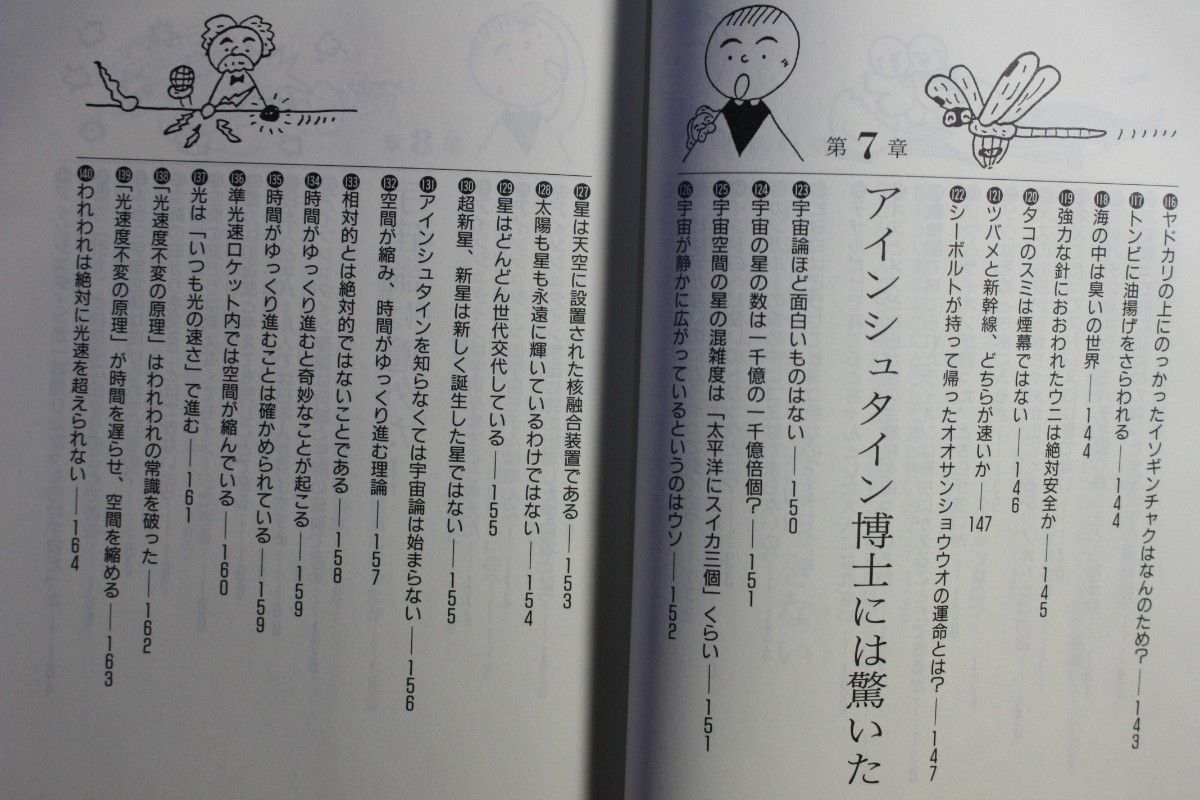 116ヤドカリの上にのっかったイソギンチャクはなんのため?——143
117トンビに油揚げをさらわれる——144
118海の中は臭いの世界——144
119強力な針におおわれたウニは絶対安全か——145
120タコのスミは煙幕ではない——146
121ツバメと新幹線、どちらが速いか——147
122シーボルトが持って帰ったオオサンショウウオの運命とは?——147
第7章
アインシュタイン博士には驚いた
123宇宙論ほど面白いものはない——150
124宇宙の星の数は一千億の一千億倍個?——151
125宇宙空間の星の混雑度は「太平洋にスイカ三個」くらい——151
126宇宙が静かに広がっているというのはウソ——152
127星は天空に設置された核融合装置である——153
128太陽も星も永遠に輝いているわけではない——154
129星はどんどん世代交代している——155
130超新星、新星は新しく誕生した星ではない——155
131アインシュタインを知らなくては宇宙論は始まらない——156
132空間が縮み、時間がゆっくり進む理論——157
133相対的とは絶対的ではないことである——158
134時間がゆっくり進むと奇妙なことが起こる——159
135時間がゆっくり進むことは確かめられている——159
136準光速ロケット内では空間が縮んでいる——160
137光は「いつも光の速さ」で進む——161
138「光速度不変の原理」はわれわれの常識を破った——162
139「光速度不変の原理」が時間を遅らせ、空間を縮める——163
140われわれは絶対に光速を超えられない——164